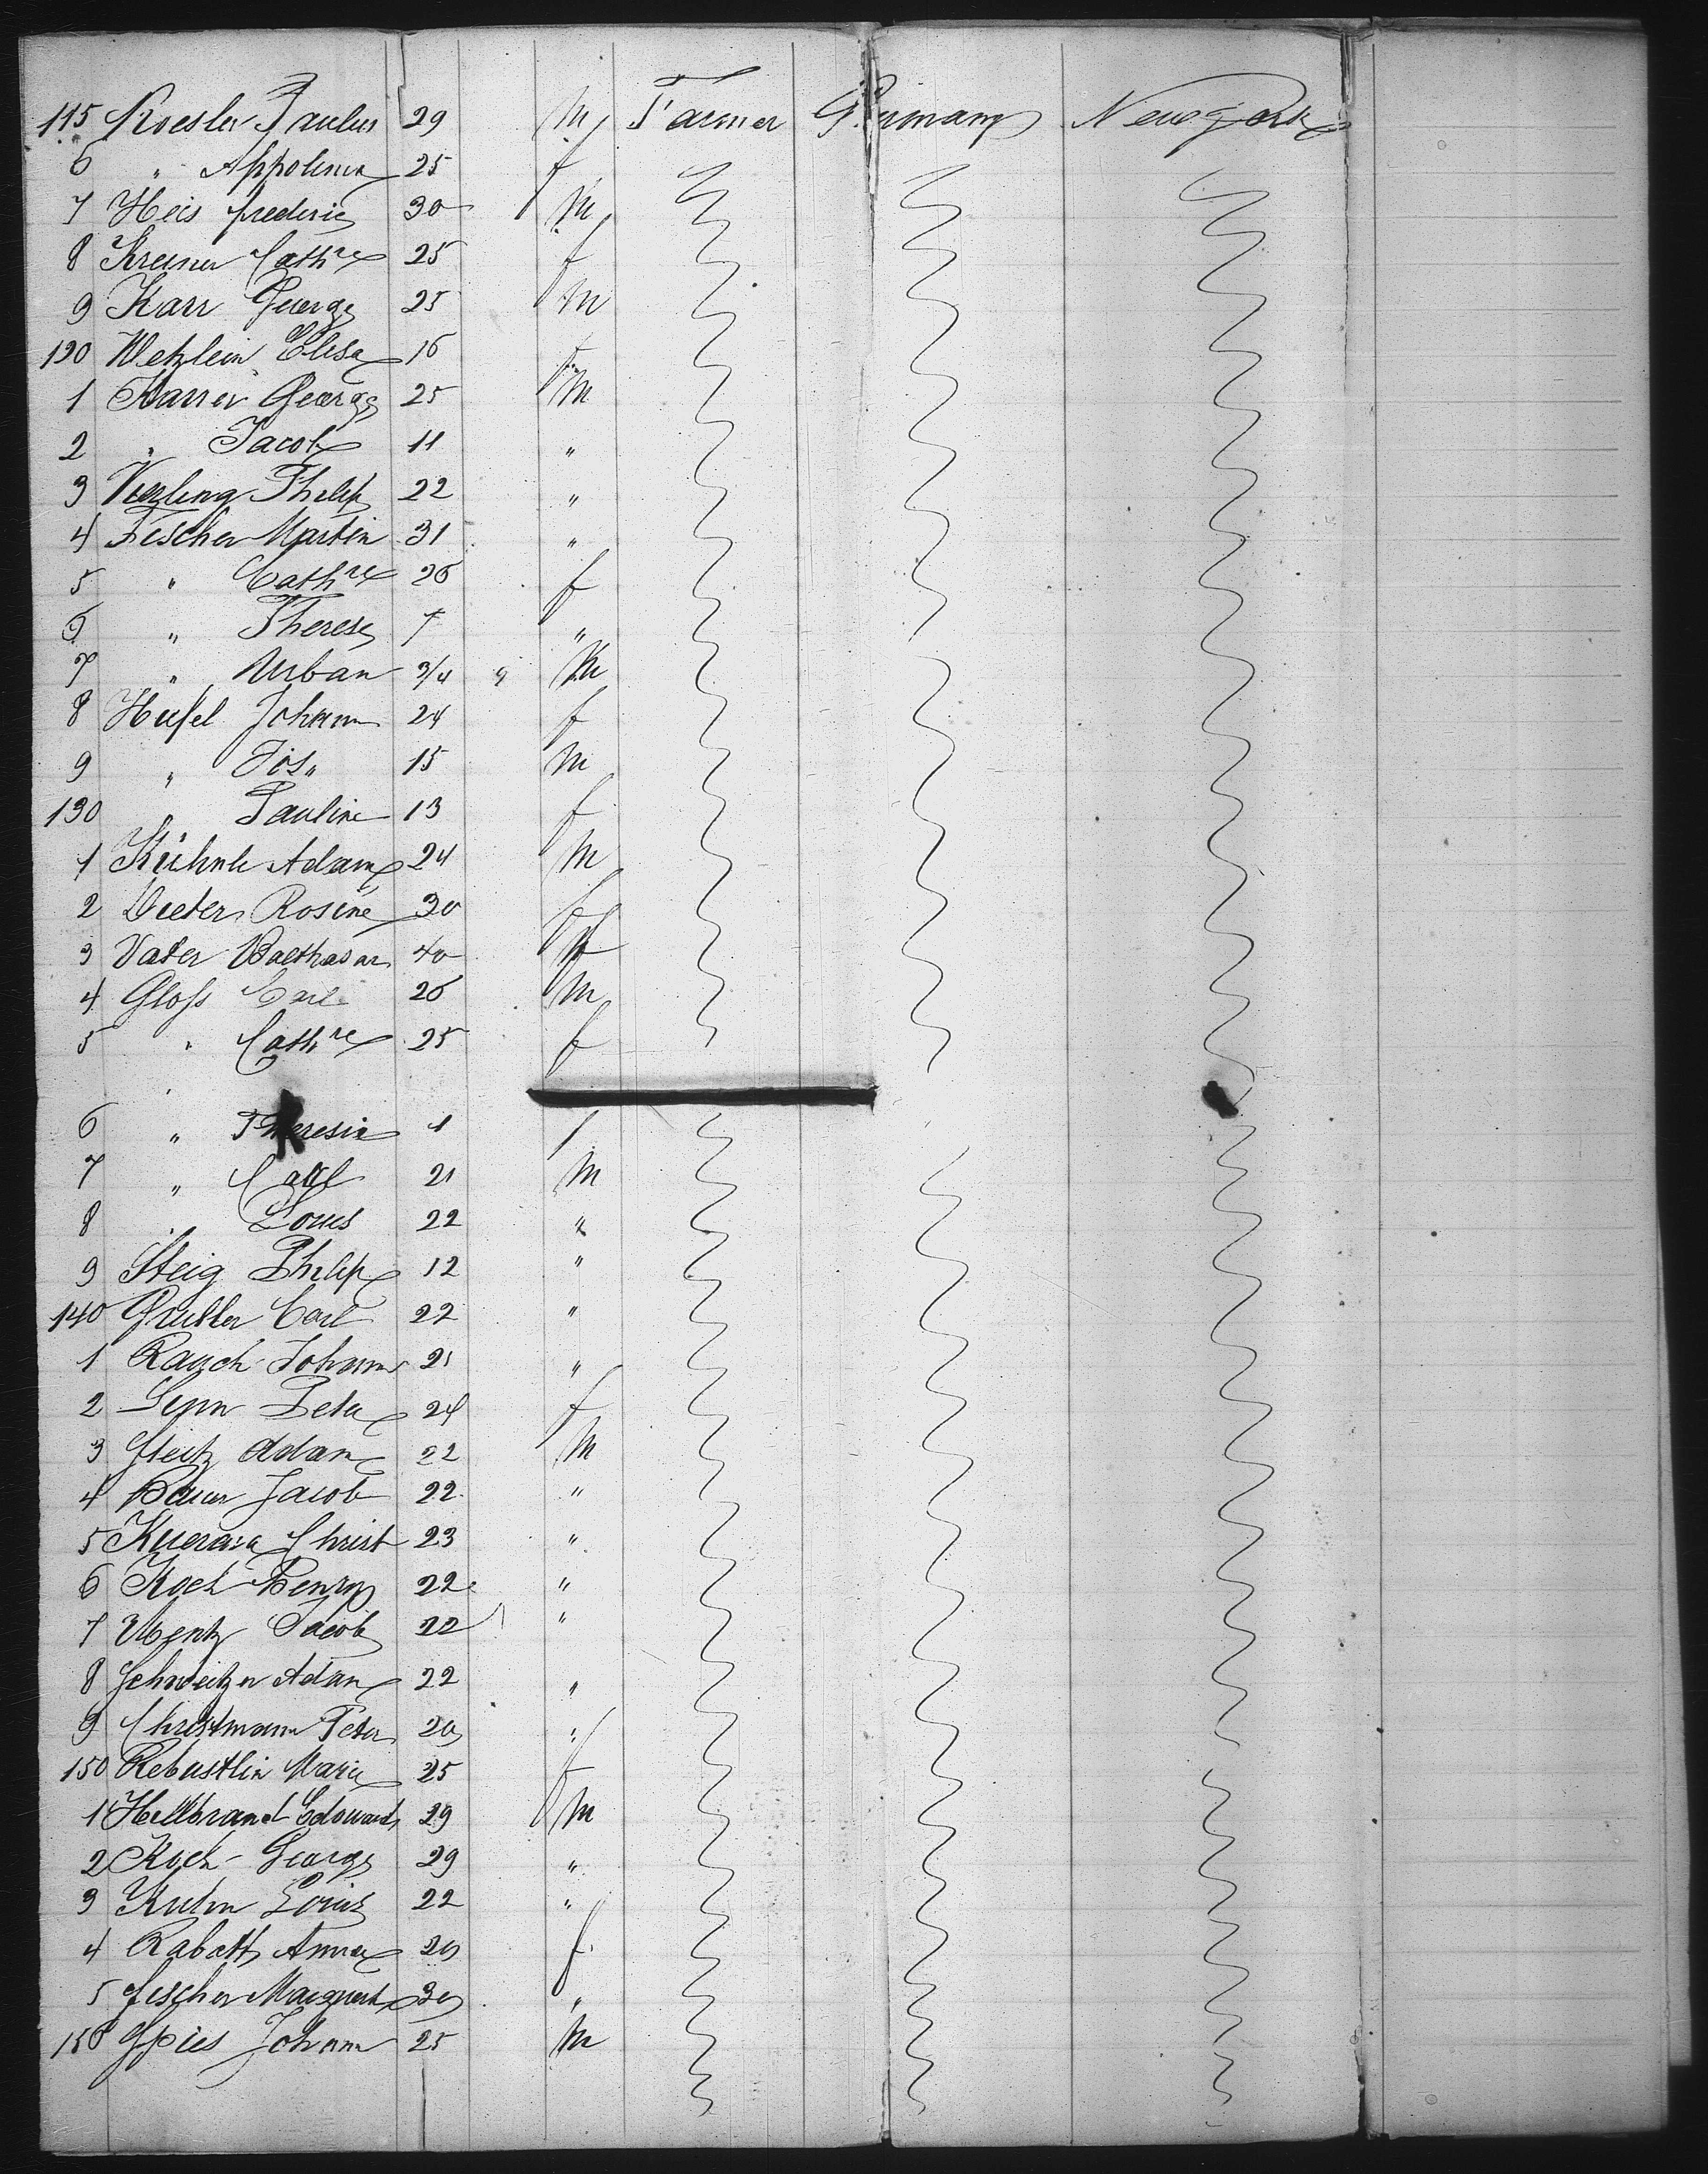 115 Koesler Paulus 29 m Farmer Germany New york
6 " Appolinia 25 f
7 Heis frederic 30 m
8 Kreiner Cathre 25 f
9 Karr George 25 m
120 Wetzlein Elisa 16 f
1 Karrer George 25 m
2 " Jacob 11 "
3 Vierling Philip 22 "
4 Fischer Martin 31 "
5 " Cathre 26 f
6 " Therese 7 "
7 " Urban 3/4 9 m
8 Hufel Johann 24 f
9 " Jos" 15 m
130 " Pauline 13 f
1 Kühnle Adam 24 m
2 Dieter Rosine 30 f
3 Vater Balthasar 40
4 Gloss Carl 26 m
5 " Cathre 25 f
6 " Theresia 1 f
7 " Carl 21 m
8 " Louis 22 "
9 Steig Philip 12 "
140 Carl 22 "
1 Rauch Johann 21 "
2 24 f
3 Adam 22 m
4 Bauer Jacob 22 "
5 Christ 23 "
6 Koch Henry 22 "
7 Jacob 22 "
8 Schweitzer Adam 22 "
9 Christmann Peter 20 "
150 Rebustlin Marie 25 f
1 Hellbrand Edouard 29 m
2 Koch George 29 "
3 Kuhn Louis 22 "
4 Rabatt Anna 20 f
5 fischer Margaret 30 "
156 Spies Johann 25 m